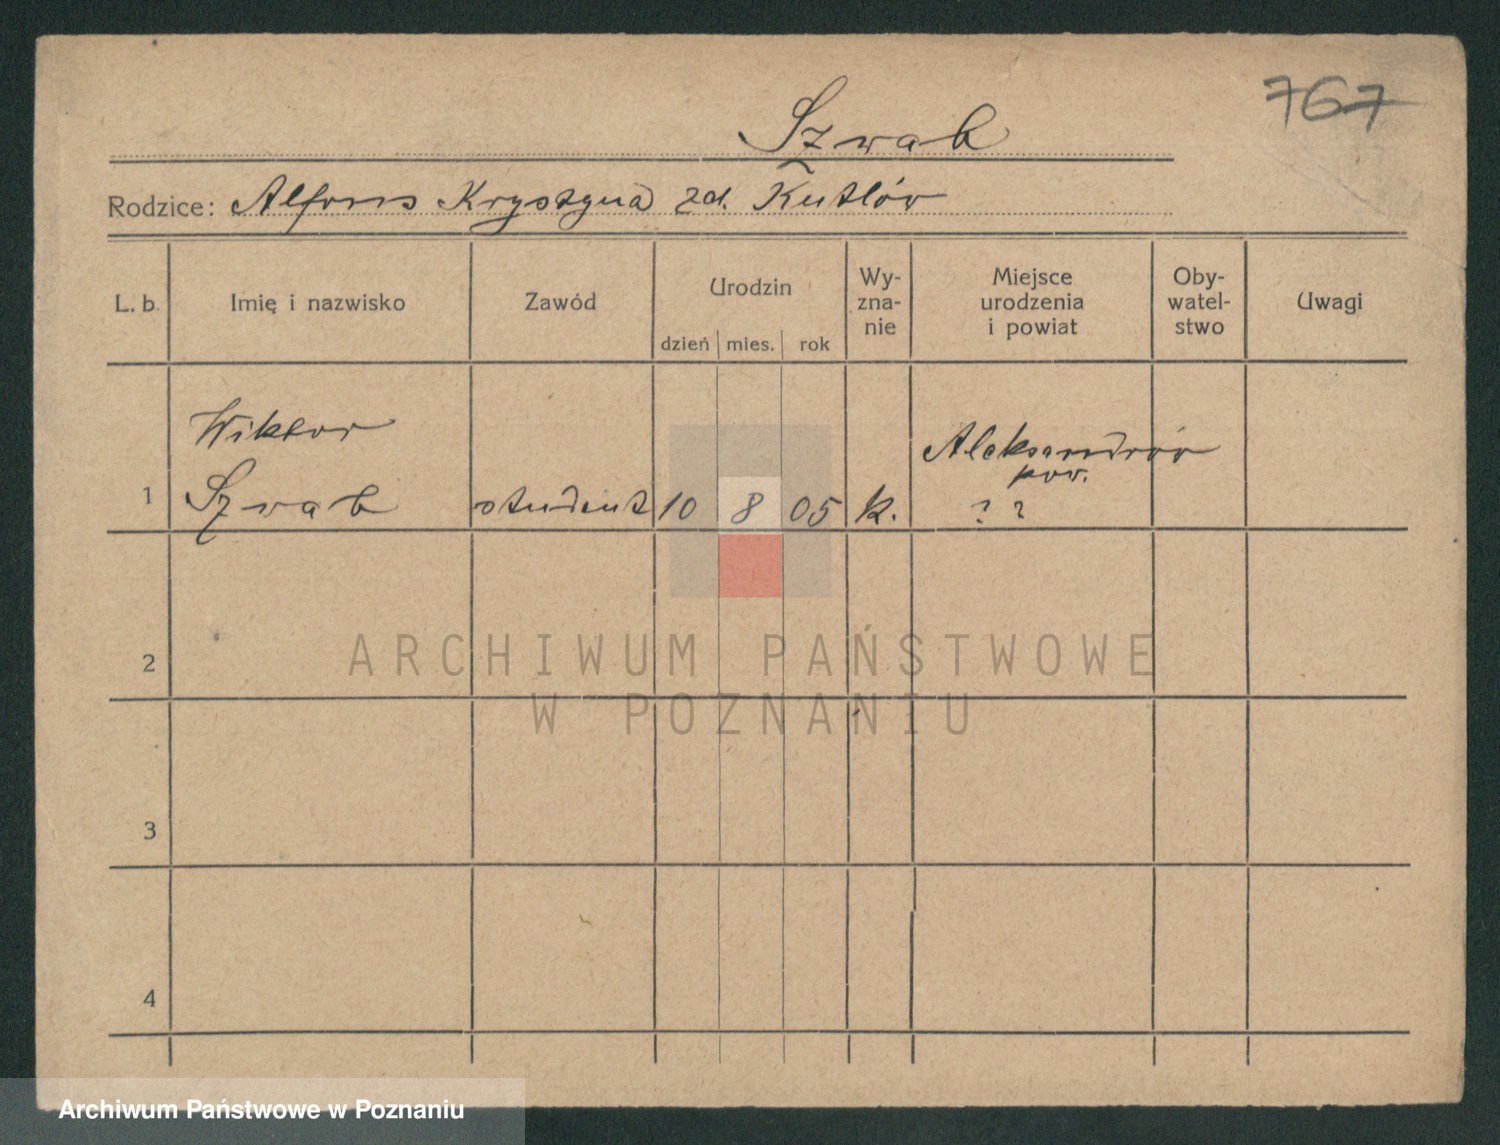 767
Szwab
Rodzice: Alfons Krystyna zd. Kutlów
L. b. Imię i nazwisko Zawód Urodzin dzień mies. rok Wy-zna-nie Miejsce urodzenia i powiat Oby-watel-stwo Uwagi
Wiktor
Aleksandrów
pow.
1 Szwab student 10 8 05 k. ? ?
2
ARCHIWUM PAŃSTWOWE
W POZNANIU
3
4
Archiwum Państwowe w Poznaniu